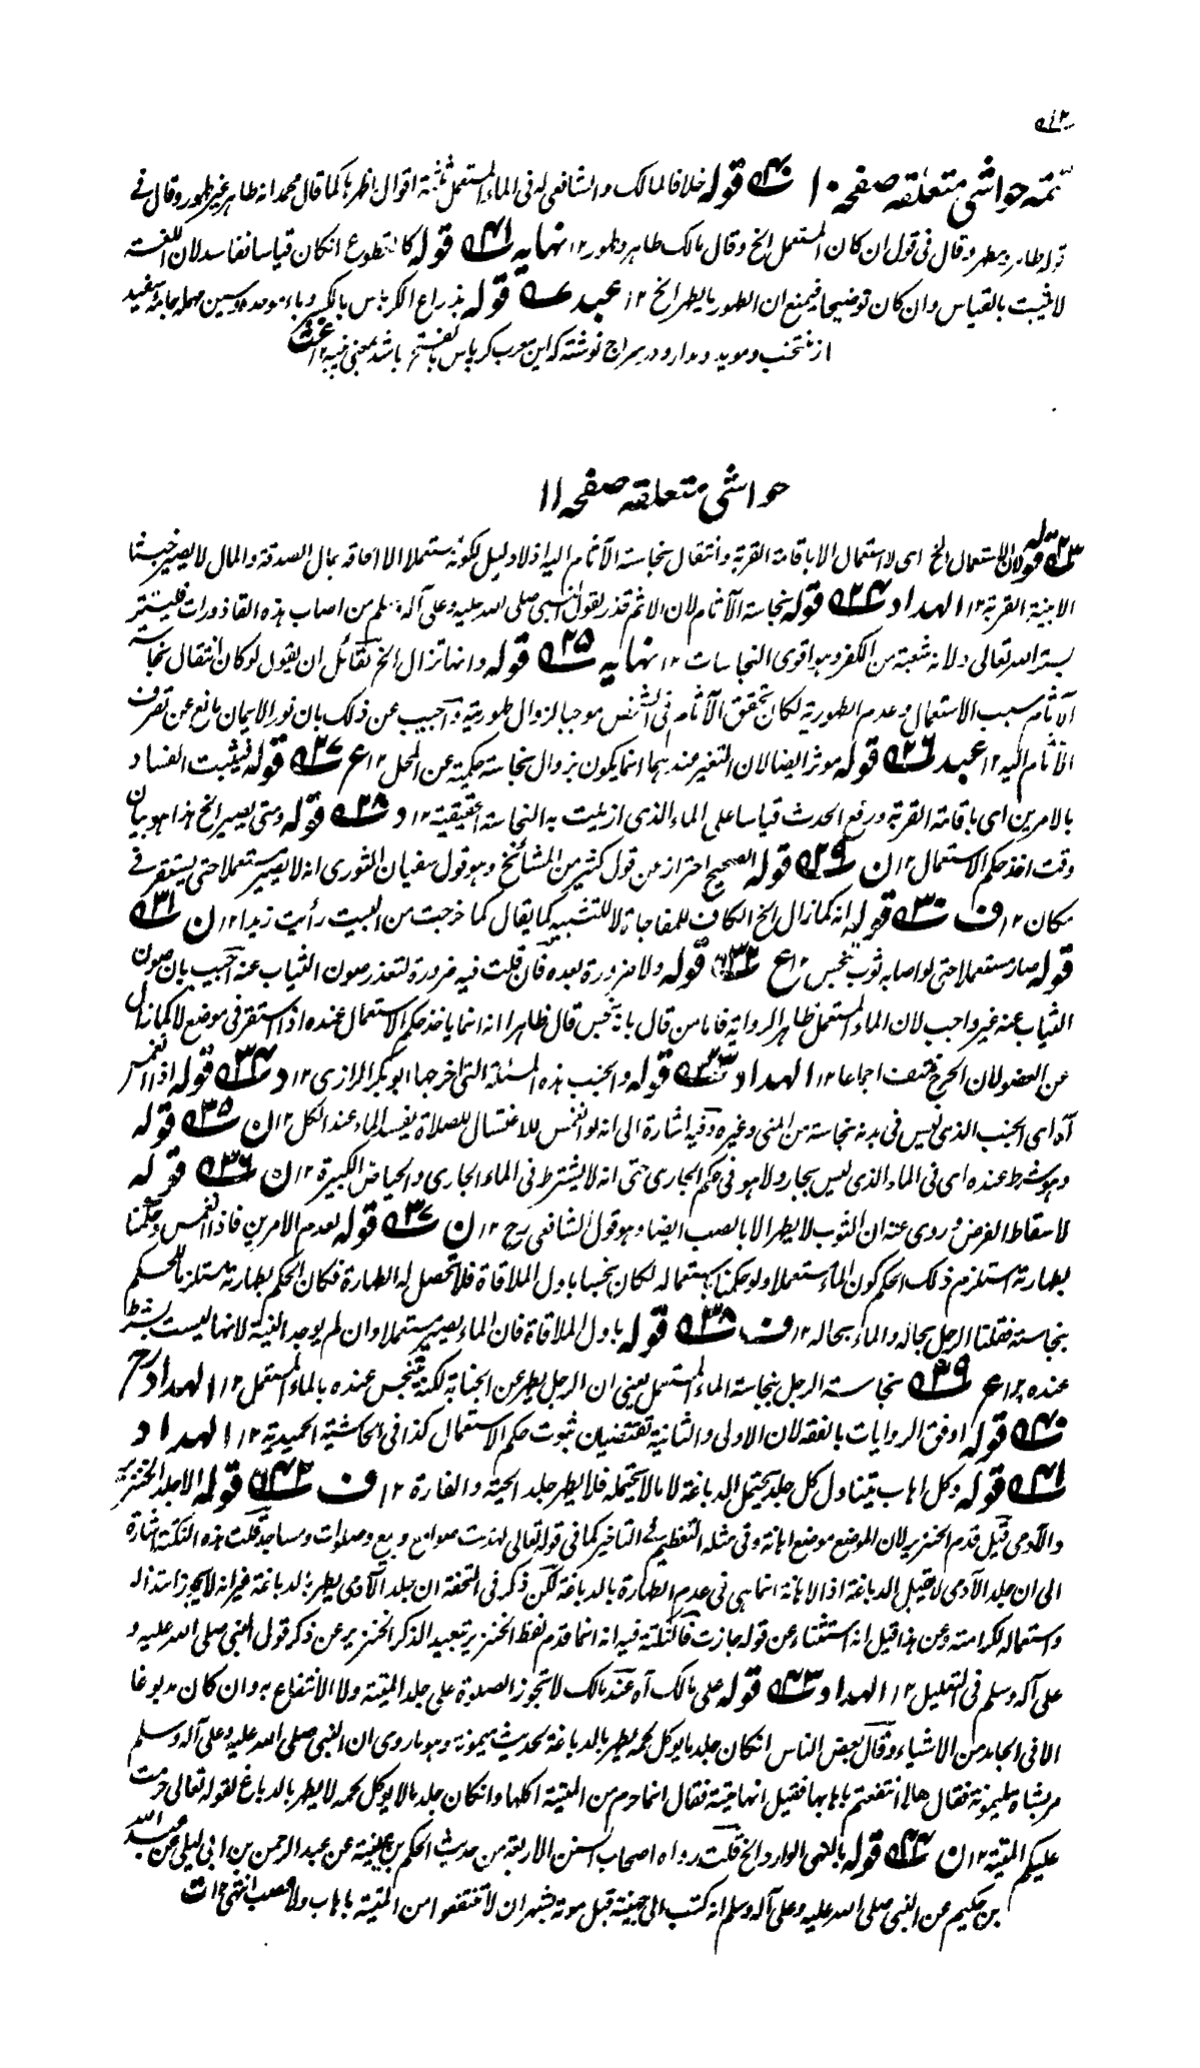 تتمه حواشی متعلقه صفحه ۱۰ ۴۰ قوله خلافا لمالک والشافعی له فی الماء المستعمل ثلثة اقوال اظهرها کما قال محمد انه طاهر غیر طهور وقال فی
قوله طاهر ومطهر وقال فی قول ان کان المستعمل الخ وقال مالک طاهر وطهور ۱۲ نهایه ۴۱ قوله کالقطوع انکان قیاسا ففاسد لان اللغة
لا تثبت بالقیاس وان کان توضیحا فیمنع ان الطهور ما یطهر الخ ۱۲ عبد قوله بذراع الکرباس بالکسر وباء موحده وسین مهمله جامه سفید
از منتخب وموید ومدار ودر سراج نوشته که این معرب کرپاس بالفتح باشد بمعنی پنبه ۱۲
حواشی متعلقه صفحه ۱۱
۲۳ قوله لان الاستعمال الخ ای لا استعمال الا باقامة القربة وانتقال نجاسة الآثام الیه اذ لا دلیل لکونه مستعملا الا الحاقه بمال الصدقة والمال لا یصیر خبیثا
الا بنیة القربة ۱۲ الهداد ۲۴ قوله نجاسة الآثام لان الاثم قذر لقول النبی صلی الله علیه وعلی آله وسلم من اصاب هذه القاذورات فلیستتر
بستر الله تعالی ولانه شعبة من الکفر وهو اقوی النجاسات ۱۲ نهایه ۲۵ قوله وانها تزال الخ لقائل ان یقول لو کان انتقال نجاسة
الآثام سبب الاستعمال وعدم الطهوریة لکان تحقق الآثام فی الشخص موجبا لزوال طهوریته واجیب عن ذلک بان نور الایمان مانع عن تصرف
الآثام الیه ۱۲ عبد ۲۶ قوله موثر ایضا لان التغیر عندهما انما یکون بزوال نجاسة حکمیة عن المحل ۱۲ ع ۲۷ قوله فیثبت الفساد
بالامرین ای باقامة القربة ورفع الحدث قیاسا علی الماء الذی ازیلت به النجاسة الحقیقیة ۱۲ د ۲۸ قوله ومتی یصیر الخ هذا هو بیان
وقت اخذ حکم الاستعمال ۱۲ ن ۲۹ قوله الصحیح احتراز عن قول کثیر من المشائخ وهو قول سفیان الثوری انه لا یصیر مستعملا حتی یستقر فی
مکان ۱۲ ف ۳۰ قوله انه کما زال الخ الکاف للمفاجاة لا للتشبیه کما یقال کما خرجت من البیت رأیت زیدا ۱۲ ن ۳۱
قوله صار مستعملا حتی لو اصابه ثوب نجس ۱۲ ع ۳۲ قوله ولا ضرورة بعده فان قلت فیه ضرورة لتعذر صون الثیاب عنه اجیب بان صون
الثیاب عنه غیر واجب لان الماء المستعمل طاهر الروایة فاما من قال بانه نجس قال ظاهرا انه انما یاخذ حکم الاستعمال عنده اذا استقر فی موضع لا کما زال
عن العضو لان الحرج منتف اجماعا ۱۲ الهداد ۳۳ قوله والجنب هذه المسئلة التی اخرجها ابو بکر الرازی ۱۲ د ۳۴ قوله اذا انغمس
آه ای الجنب الذی لیس فی بدنه نجاسة من المنی وغیره وفیه اشارة الی انه لو انغمس للاغتسال للصلاة یفسد الماء عند الکل ۱۲ ن ۳۵ قوله
وهو شرط عنده ای فی الماء الذی لیس بجار ولا هو فی حکم الجاری حتی انه لا یشترط فی الماء الجاری والحیاض الکبیرة ۱۲ ن ۳۶ قوله
لاسقاط الفرض وروی عنه ان الثوب لا یطهر الا بالصب ایضا وهو قول الشافعی رح ۱۲ ن ۳۷ قوله لعدم الامرین فاذا انغمس وحکمنا
بطهارته استلزم ذلک الحکم کون الماء مستعملا ولو حکمنا باستعماله لکان نجسا باول الملاقاة فلا تحصل له الطهارة فکان الحکم بطهارته مستلزما للحکم
بنجاسته فقلنا الرجل بحاله والماء بحاله ۱۲ ف ۳۸ قوله باول الملاقاة فان الماء یصیر مستعملا وان لم یوجد النیة لانها لیست بشرط
عنده ۱۲ ع ۳۹ نجاسة الرجل بنجاسة الماء المستعمل یعنی ان الرجل یطهر عن الجنابة لکنه یتنجس عنده بالماء المستعمل ۱۲ الهداد رح
۴۰ قوله اوفق الروایات بالفقه لان الاولی والثانیة تقتضیان ثبوت حکم الاستعمال کذا فی الحاشیة الحمیدیة ۱۲ الهداد
۴۱ قوله وکل اهاب یتناول کل جلد یحتمل الدباغة لا ما لا یحتمله فلا یطهر جلد الحیة والفارة ۱۲ ف ۴۲ قوله الا جلد الخنزیر
والآدمی قیل قدم الخنزیر لان الموضع موضع اهانة وفی مثله التعظیم فی التاخیر کما فی قوله تعالی لهدمت صوامع وبیع وصلوات ومساجد قلت هذه النکتة اشارة
الی ان جلد الآدمی لا یقبل الدباغة اذ الاهانة انما هی فی عدم الطهارة بالدباغة لکن ذکر فی التحفة ان جلد الآدمی یطهر بالدباغة غیر انه لا یجوز ابتذاله
واستعماله لکرامته وعن هذا قیل انه استثناء عن قوله جازت فالنکتة فیه انه انما قدم لفظ الخنزیر تبعید الذکر الخنزیر عن ذکر قول النبی صلی الله علیه و
علی آله وسلم فی التعلیل ۱۲ الهداد ۴۳ قوله علی مالک آه عند مالک لا تجوز الصلوة علی جلد المیتة ولا الانتفاع به وان کان مدبوغا
الا فی الجامد من الاشیاء وقال بعض الناس انکان جلد ما یوکل لحمه یطهر بالدباغة لحدیث میمونة وهو ما روی ان النبی صلی الله علیه وعلی آله وسلم
مر بشاة میمونة فقال هلا انتفعتم باهابها فقیل انها میتة فقال انما حرم من المیتة اکلها وانکان جلد ما لا یوکل لحمه لا یطهر بالدباغ لقوله تعالی حرمت
علیکم المیتة ۱۲ ن ۴۴ قوله بالنهی الوارد الخ قلت رواه اصحاب السنن الاربعة من حدیث الحکم بن عیینة عن عبد الرحمن بن ابی لیلی عن عبد الله
بن حکیم عن النبی صلی الله علیه وعلی آله وسلم انه کتب الی جهینة قبل موته بشهر ان لا تنتفعوا من المیتة باهاب ولا عصب انتهی ۱۲ ت